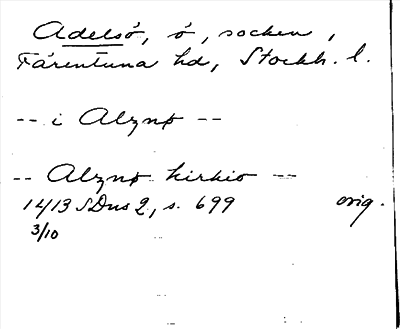 Adelsö, ö, socken,
Färentuna hd, Stockh. l.
-- i Alznø --
-- Alznø kirkio --
1413 SDns 2, s. 699 orig.
3/10